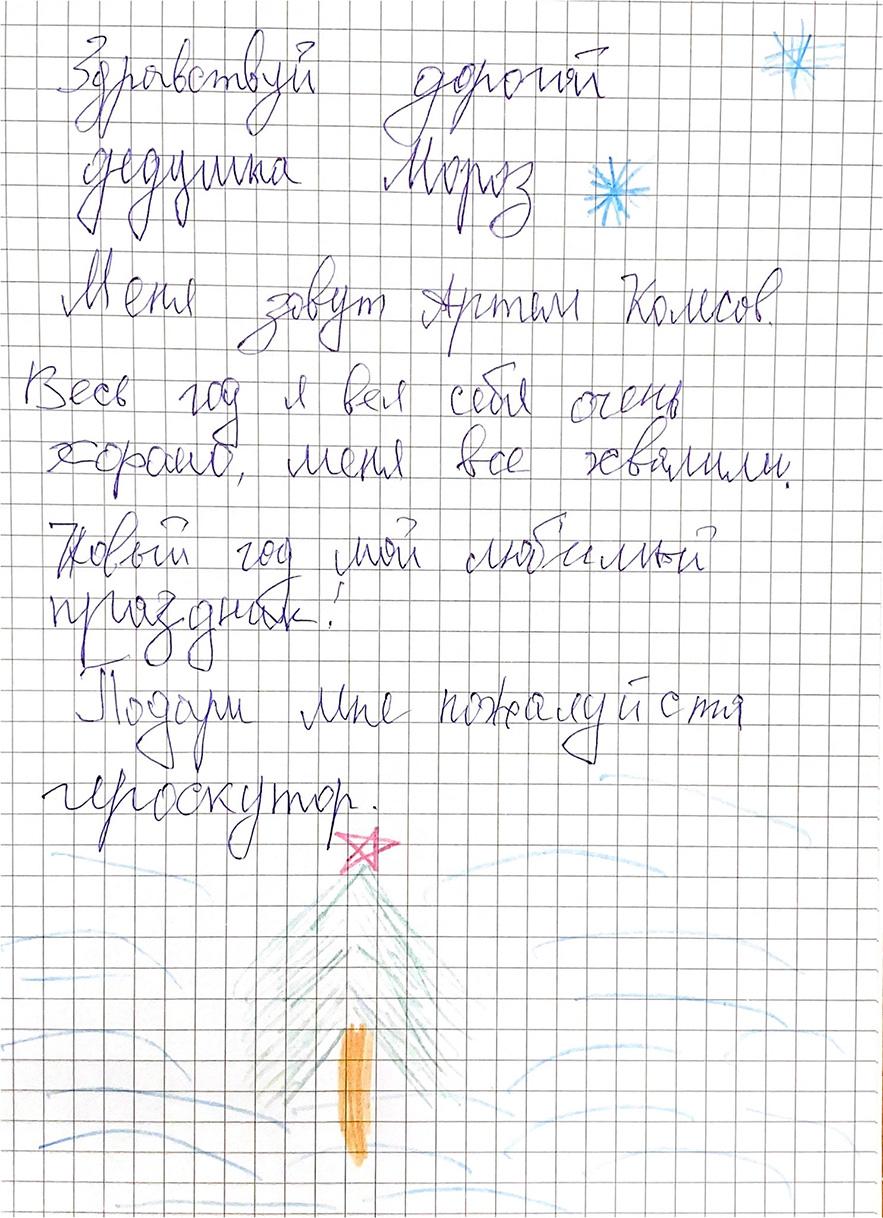 Здравствуй дорогой
дедушка Мороз
Меня зовут Артем Колесов.
Весь год я вел себя очень
хорошо, меня все хвалили.
Новый год мой любимый
праздник!
Подари мне пожалуйста
гироскутор.